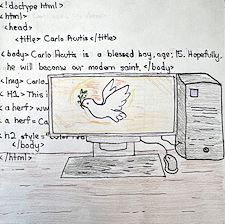 <!doctype html>
<html>
<head>
<title> Carlo Acutis </title>
<body> Carlo Acutis is a blessed boy, age; 15. Hopefully,
he will become our modern saint. </body>
<Img> Carlo
< H1 > This i
< a herf> ww
< a herf = Ca
< h2 style =
</body>
</html>